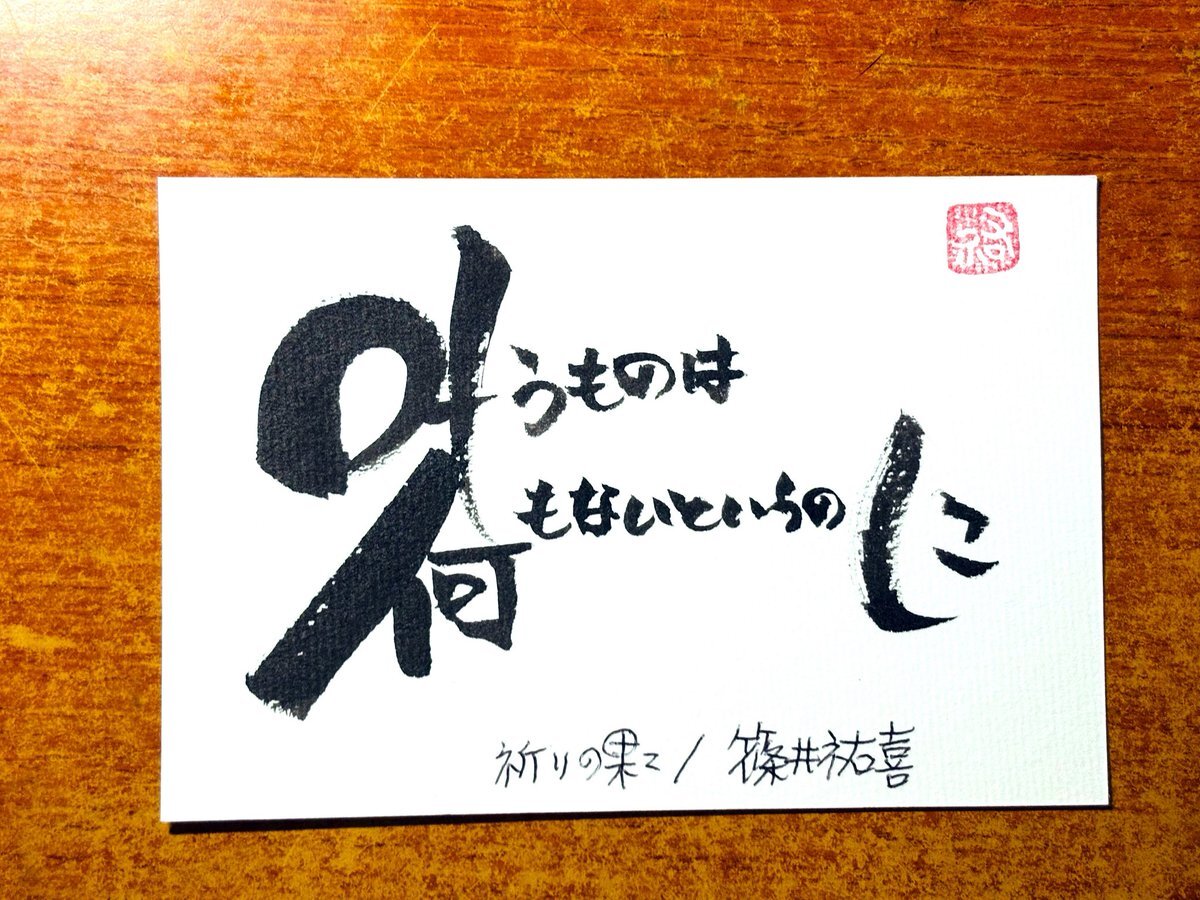 叶うものは
何もないというのに
祈りの果て/篠井祐喜